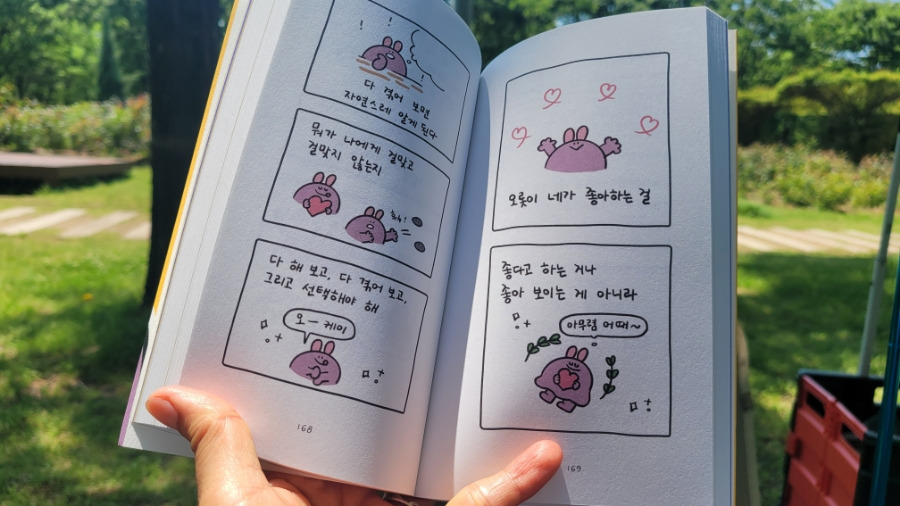 다 겪어 보면
자연스레 알게 된다
뭐가 나에게 걸맞고
걸맞지 않는지
훠이!
다 해 보고, 다 겪어 보고,
그리고 선택해야 해
오— 케이
168
오롯이 네가 좋아하는 걸
좋다고 하는 거나
좋아 보이는 게 아니라
아무렴 어때~
169